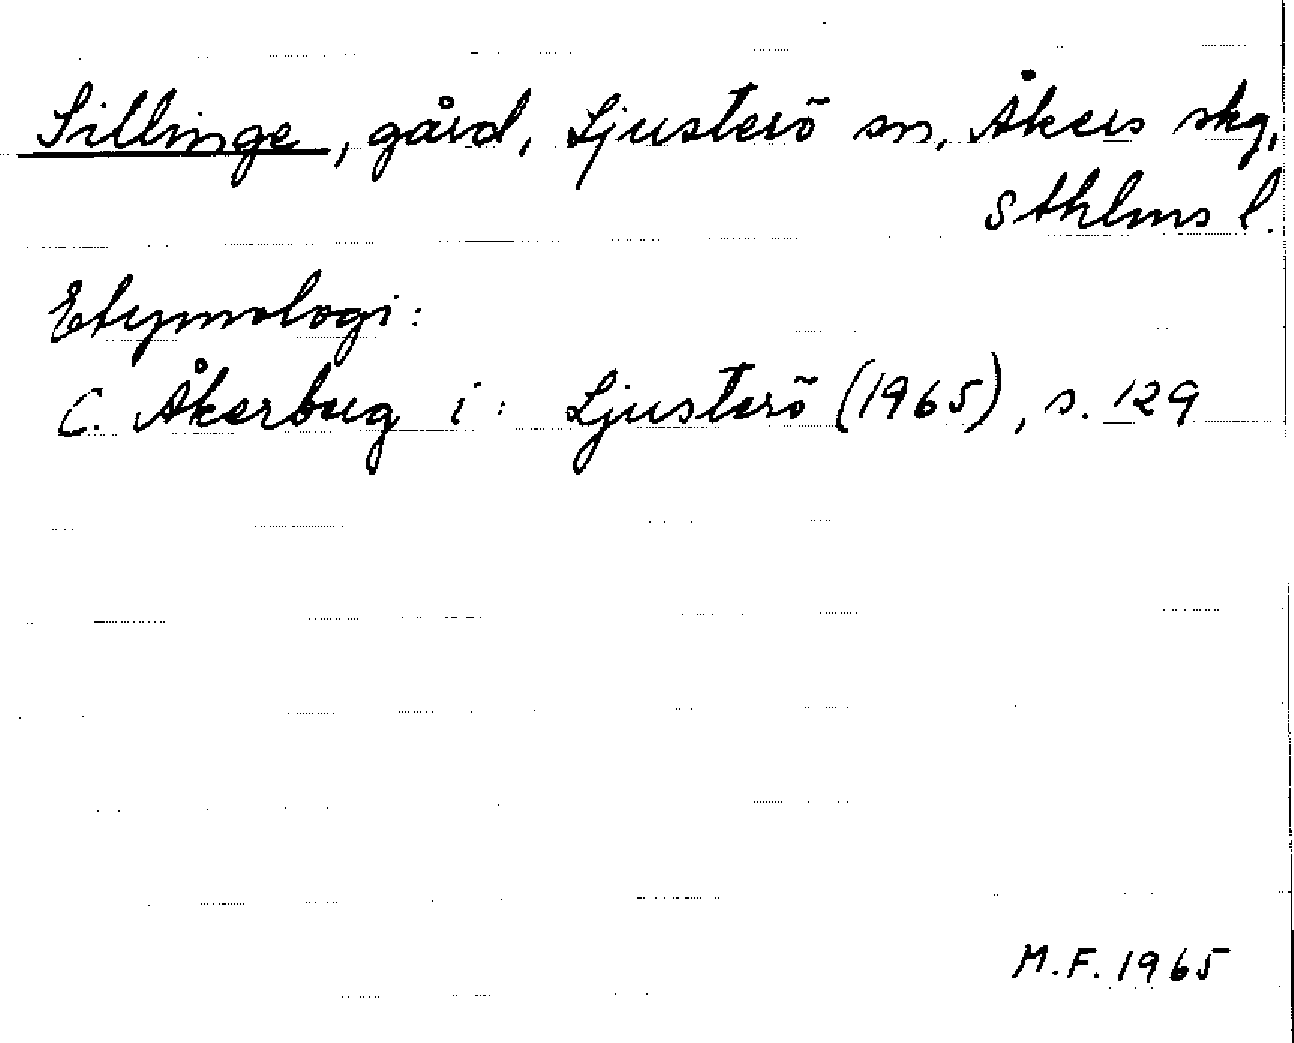 Sillinge, gård, Ljusterö sn, Åkers skg,
Sthlms l.
Etymologi:
C. Åkerberg i: Ljusterö (1965), s. 129
M.F. 1965